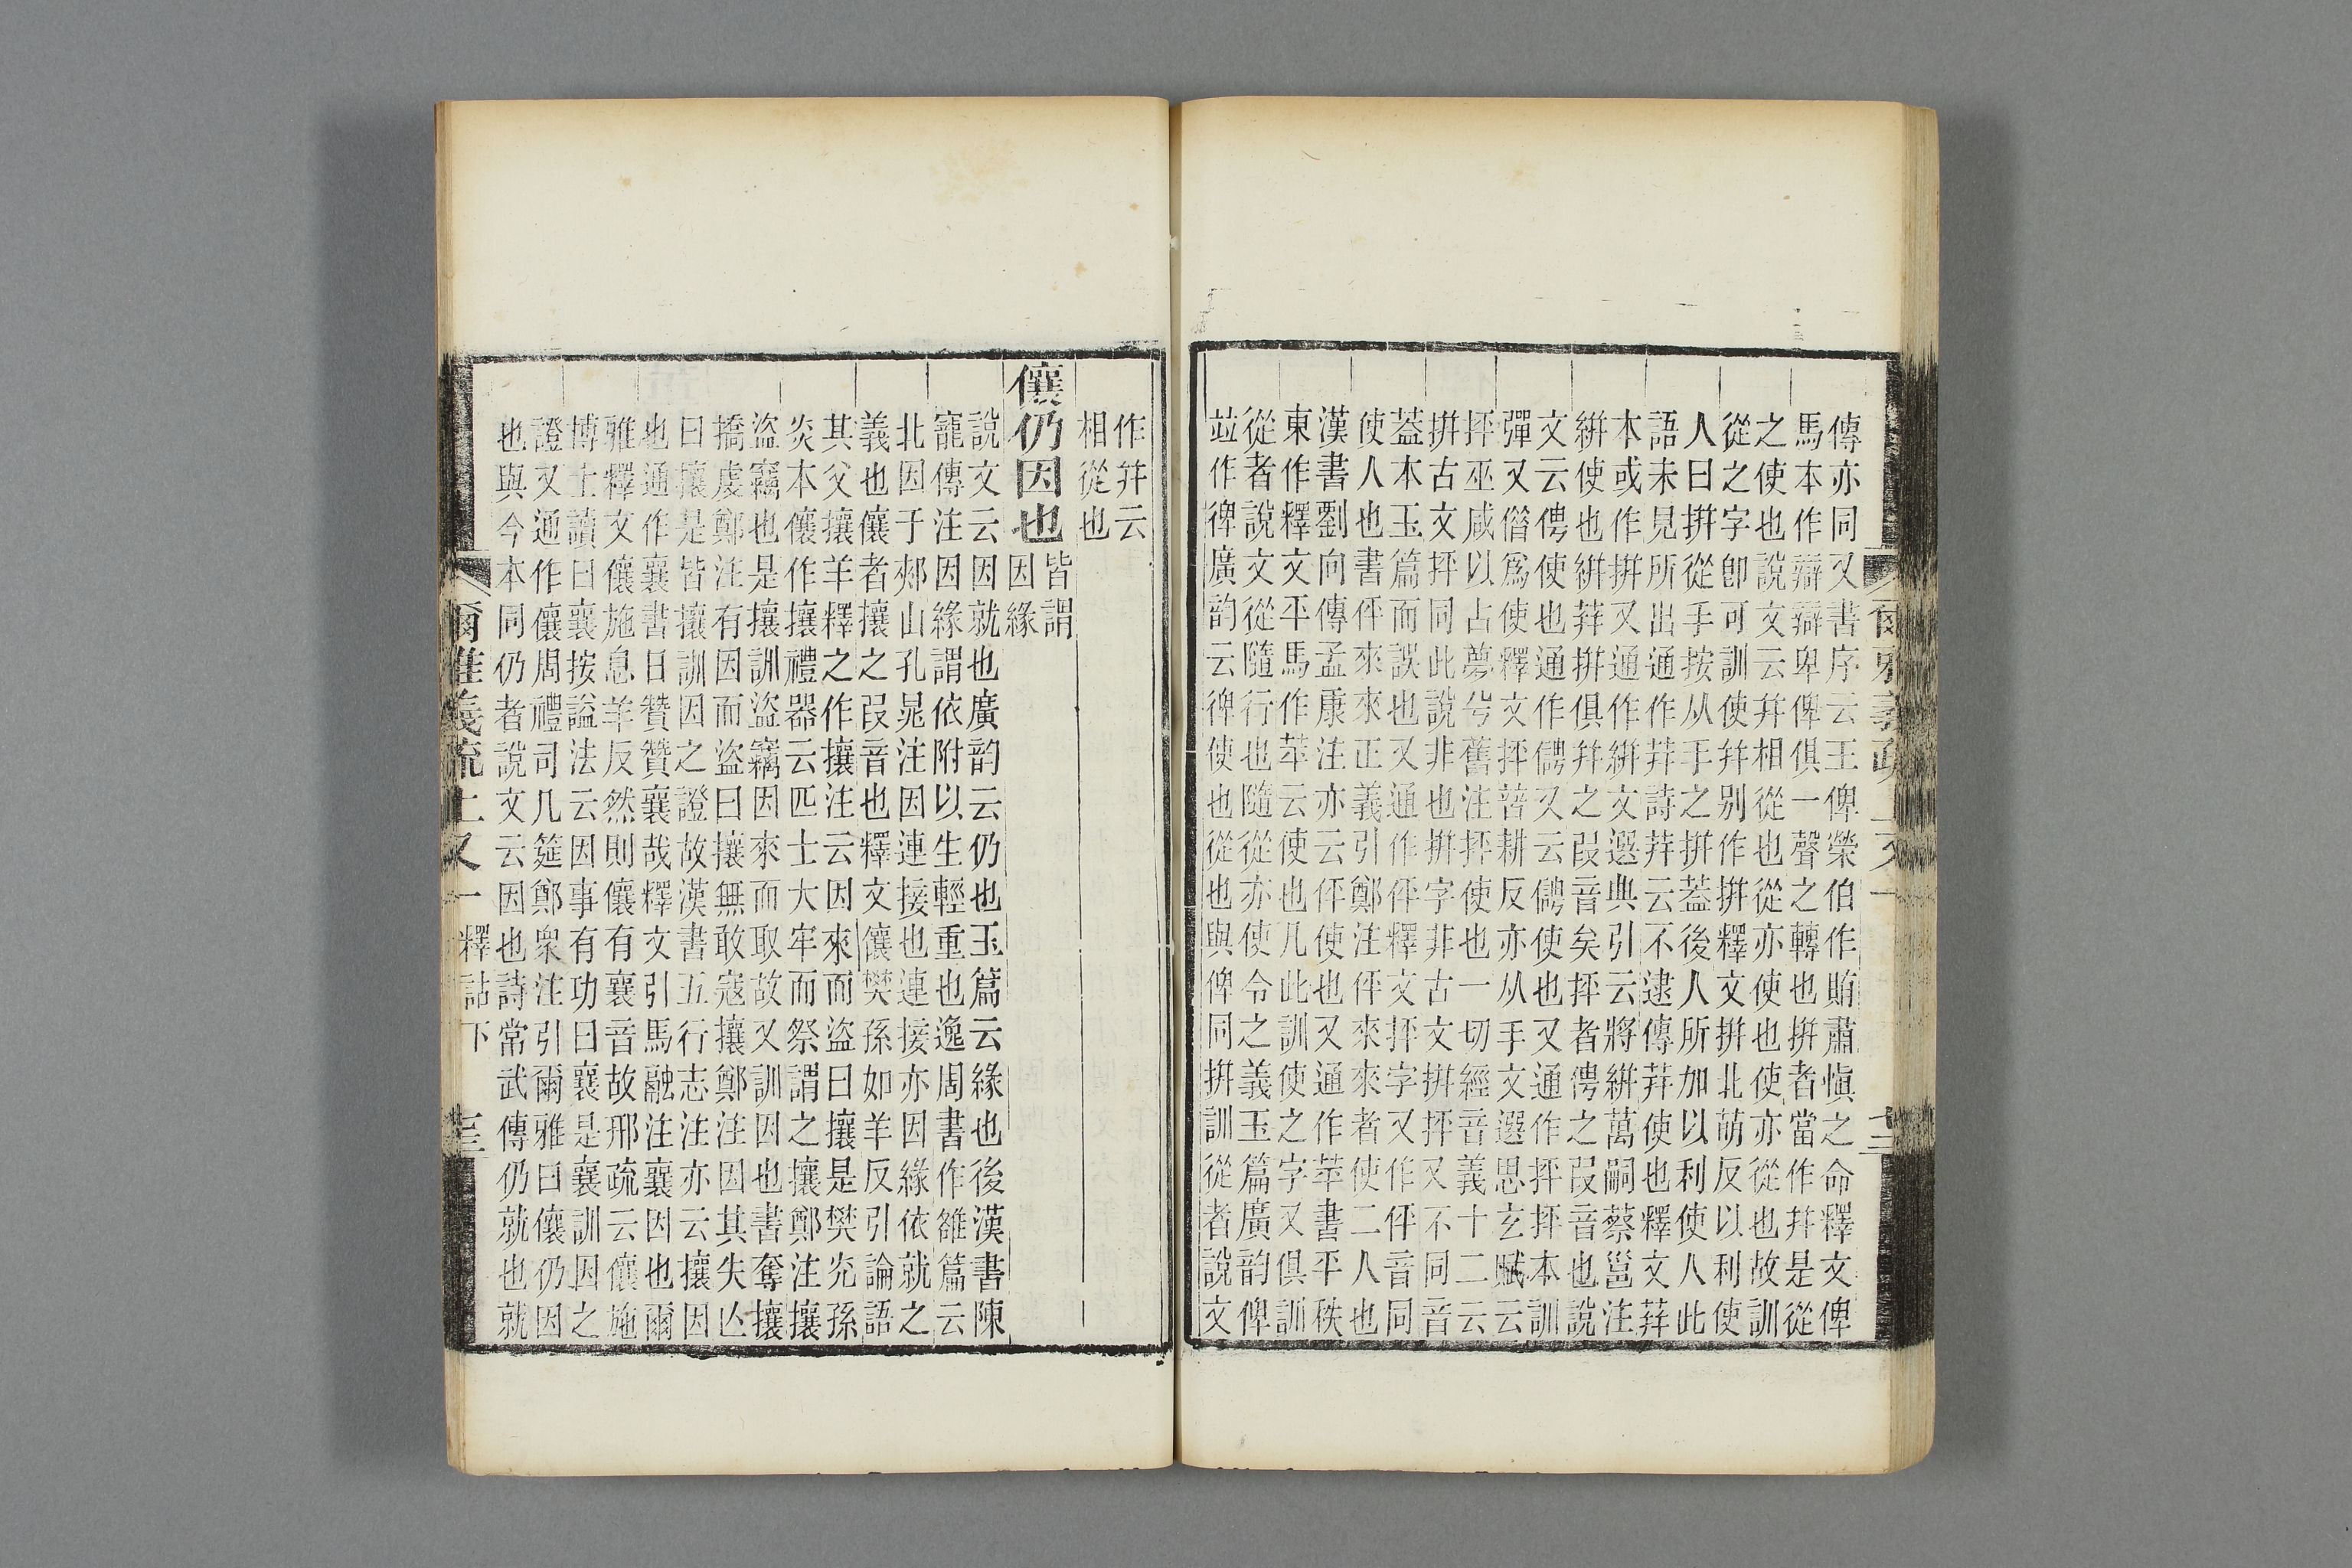 傳亦同又書序云王俾榮伯作賄肅愼之命釋文俾
馬本作辯辯卑俾俱一聲之轉也拼者當作幷是從
之使也說文云幷相從也從亦使也使亦從也故訓
從之字卽可訓使幷別作拼釋文拼北萌反以利使
人曰拼從手按从手之拼蓋後人所加以利使人此
語未見所出通作荓詩荓云不逮傳荓使也釋文荓
本或作拼又通作絣文選典引云將絣萬嗣蔡邕注
絣使也絣荓拼俱幷之叚音矣抨者俜之叚音也說
文云俜使也通作儜又云儜使也又通作抨抨本訓
彈又偕爲使釋文抨普耕反亦从手文選思玄賦云
抨巫咸以占夢兮舊注抨使也一切經音義十二云
拼古文抨同此說非也拼字非古文拼抨又不同音
蓋本玉篇而誤也又通作伻釋文抨字又作伻音同
使人也書伻來來正義引鄭注伻來來者使二人也
漢書劉向傳孟康注亦云伻使也又通作苹書平秩
東作釋文平馬作苹云使也凡此訓使之字又俱訓
從者說文從隨行也隨從亦使令之義玉篇廣韵俾
竝作𢔌廣韵云𢔌使也從也與俾同拼訓從者說文
爾雅義疏 上又一 十三
作幷云
相從也
儴仍因也
皆謂
因緣
說文云因就也廣韵云仍也玉篇云緣也後漢書陳
寵傳注因緣謂依附以生輕重也逸周書作雒篇云
北因于郟山孔晁注因連接也連接亦因緣依就之
義也儴者攘之叚音也釋文儴樊孫如羊反引論語
其父攘羊釋之作攘注云因來而盜曰攘是樊光孫
炎本儴作攘禮器云匹士大牢而祭謂之攘鄭注攘
盜竊也是攘訓盜竊因來而取故又訓因也書奪攘
撟虔鄭注有因而盜曰攘無敢寇攘鄭注因其失亾
曰攘是皆攘訓因之證故漢書五行志注亦云攘因
也通作襄書曰贊贊襄哉釋文引馬融注襄因也爾
雅釋文儴施息羊反然則儴有襄音故邢疏云儴施
博士讀曰襄按謚法云因事有功曰襄是襄訓因之
證又通作儴周禮司几筵鄭衆注引爾雅曰儴仍因
也與今本同仍者說文云因也詩常武傳仍就也就
爾雅義疏 上又一 釋詁下 十三